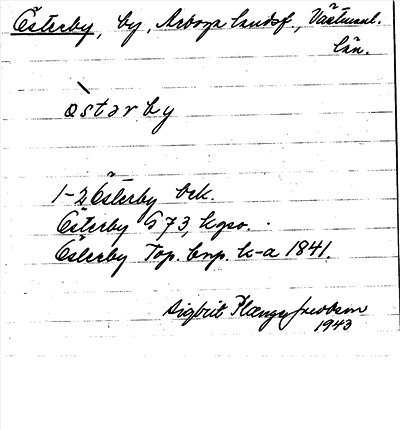 Österby, by, Arboga landsf., Västmanl.
län.
östərby
1-2 Österby Jek.
Österby G 73, kgso.
Österby Top. corp. k-a 1841.
Sigbrit Plænge Jacobson
1943